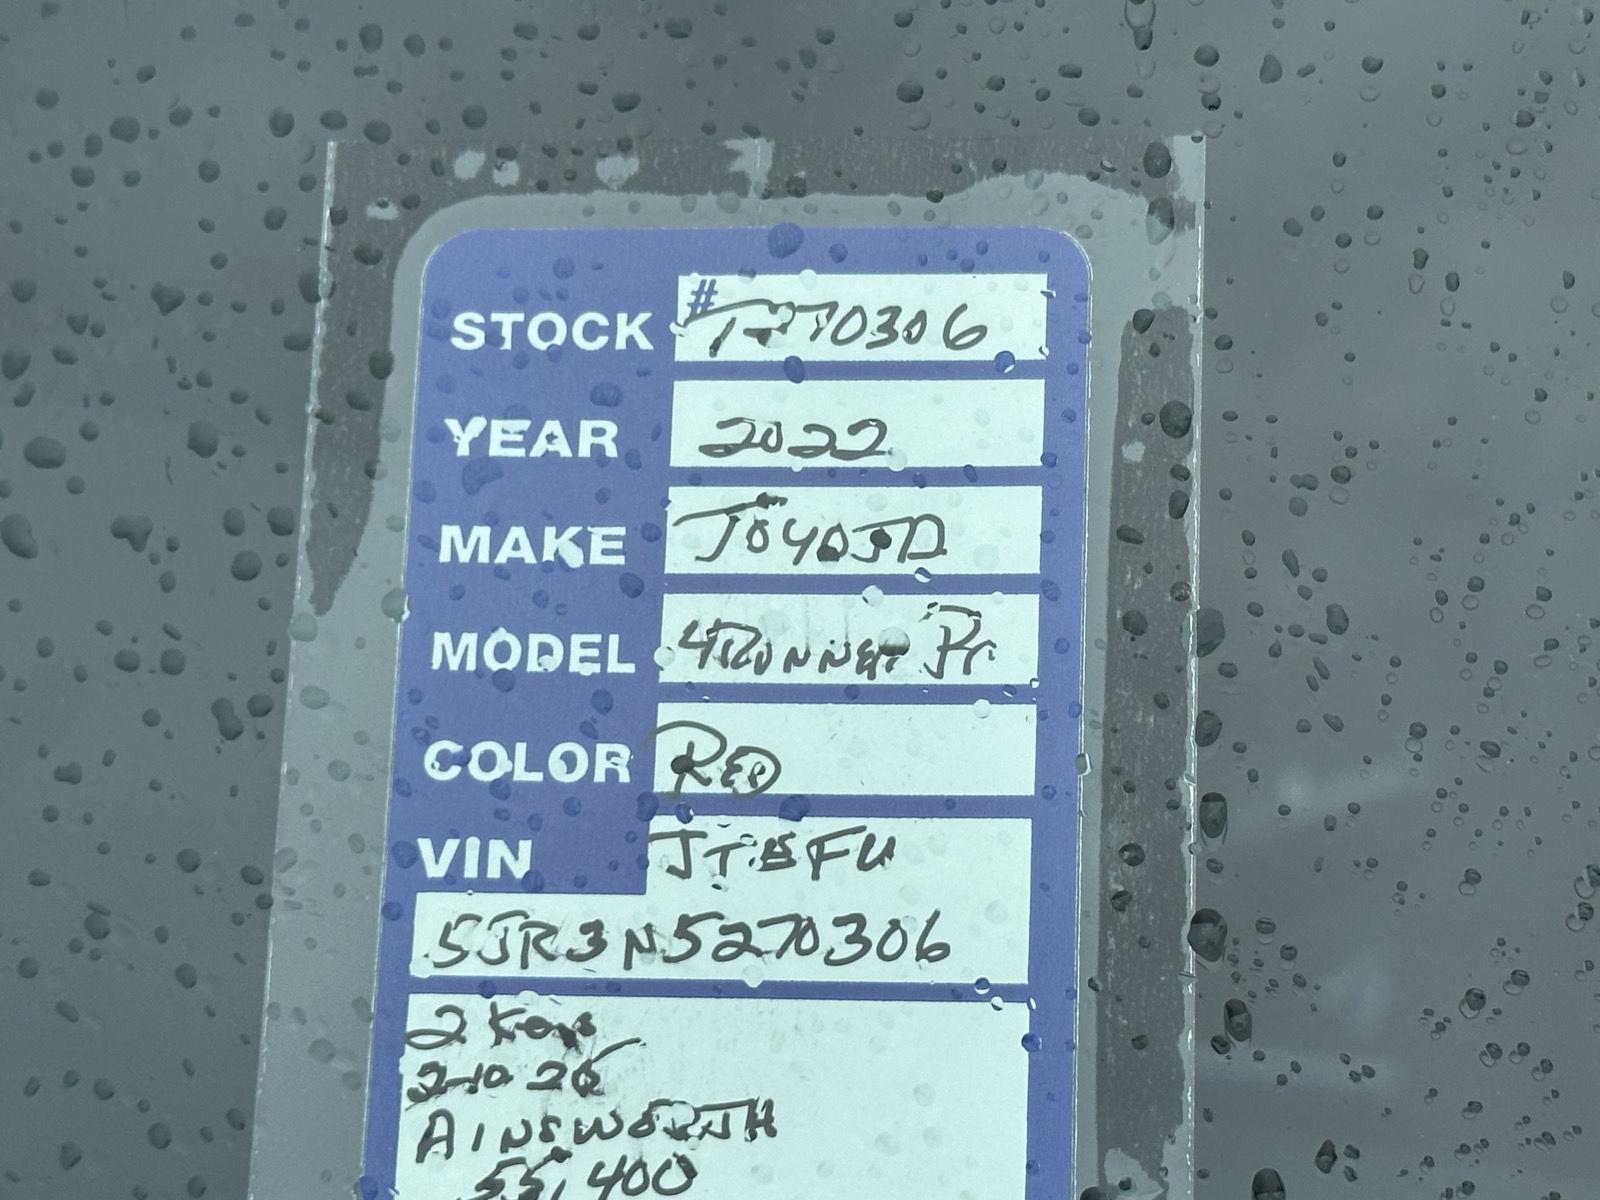 STOCK # T270306
YEAR 2022
MAKE TOYOTA
MODEL 4RUNNER
COLOR RED
VIN JTEFU
5JR3N5270306
2 Keys
2-10 26
AINSWORTH
55,400